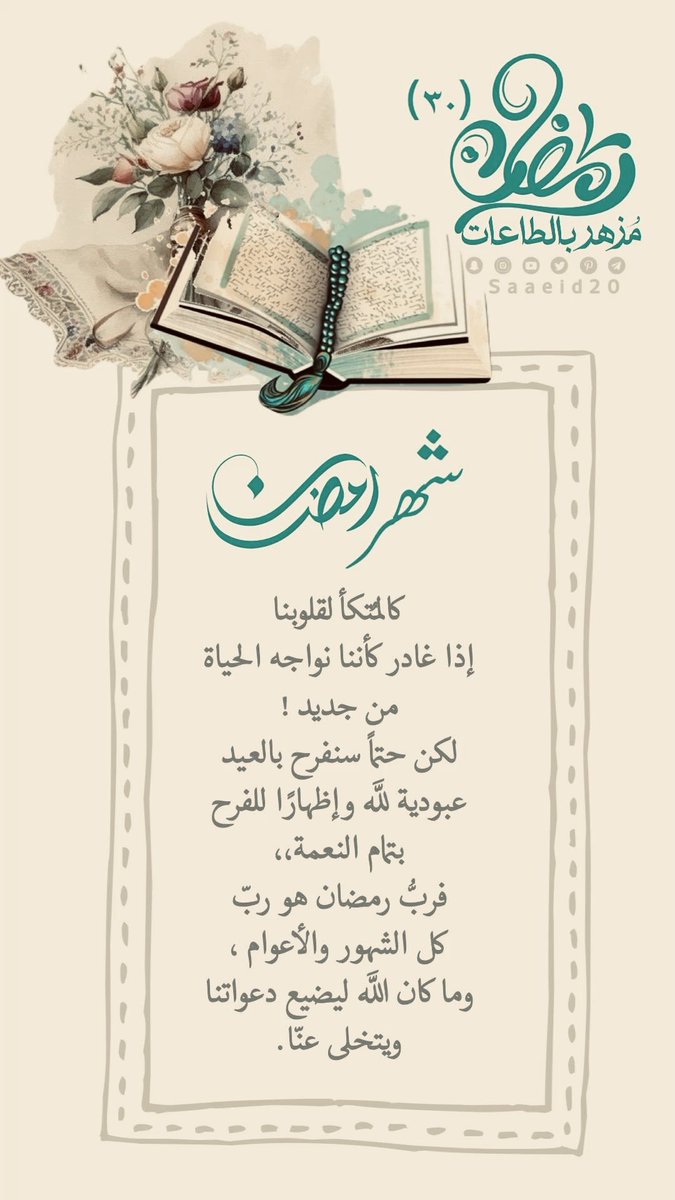 (٣٠)
رمضان
مُزهر بالطاعات
Saaeid20
شهر رمضان
كالمُتكأ لقلوبنا
إذا غادر كأننا نواجه الحياة
من جديد !
لكن حتماً سنفرح بالعيد
عبودية للَّه وإظهارًا للفرح
بتمام النعمة،،
فربُّ رمضان هو ربّ
كل الشهور والأعوام ،
وما كان اللَّه ليضيع دعواتنا
ويتخلى عنّا.